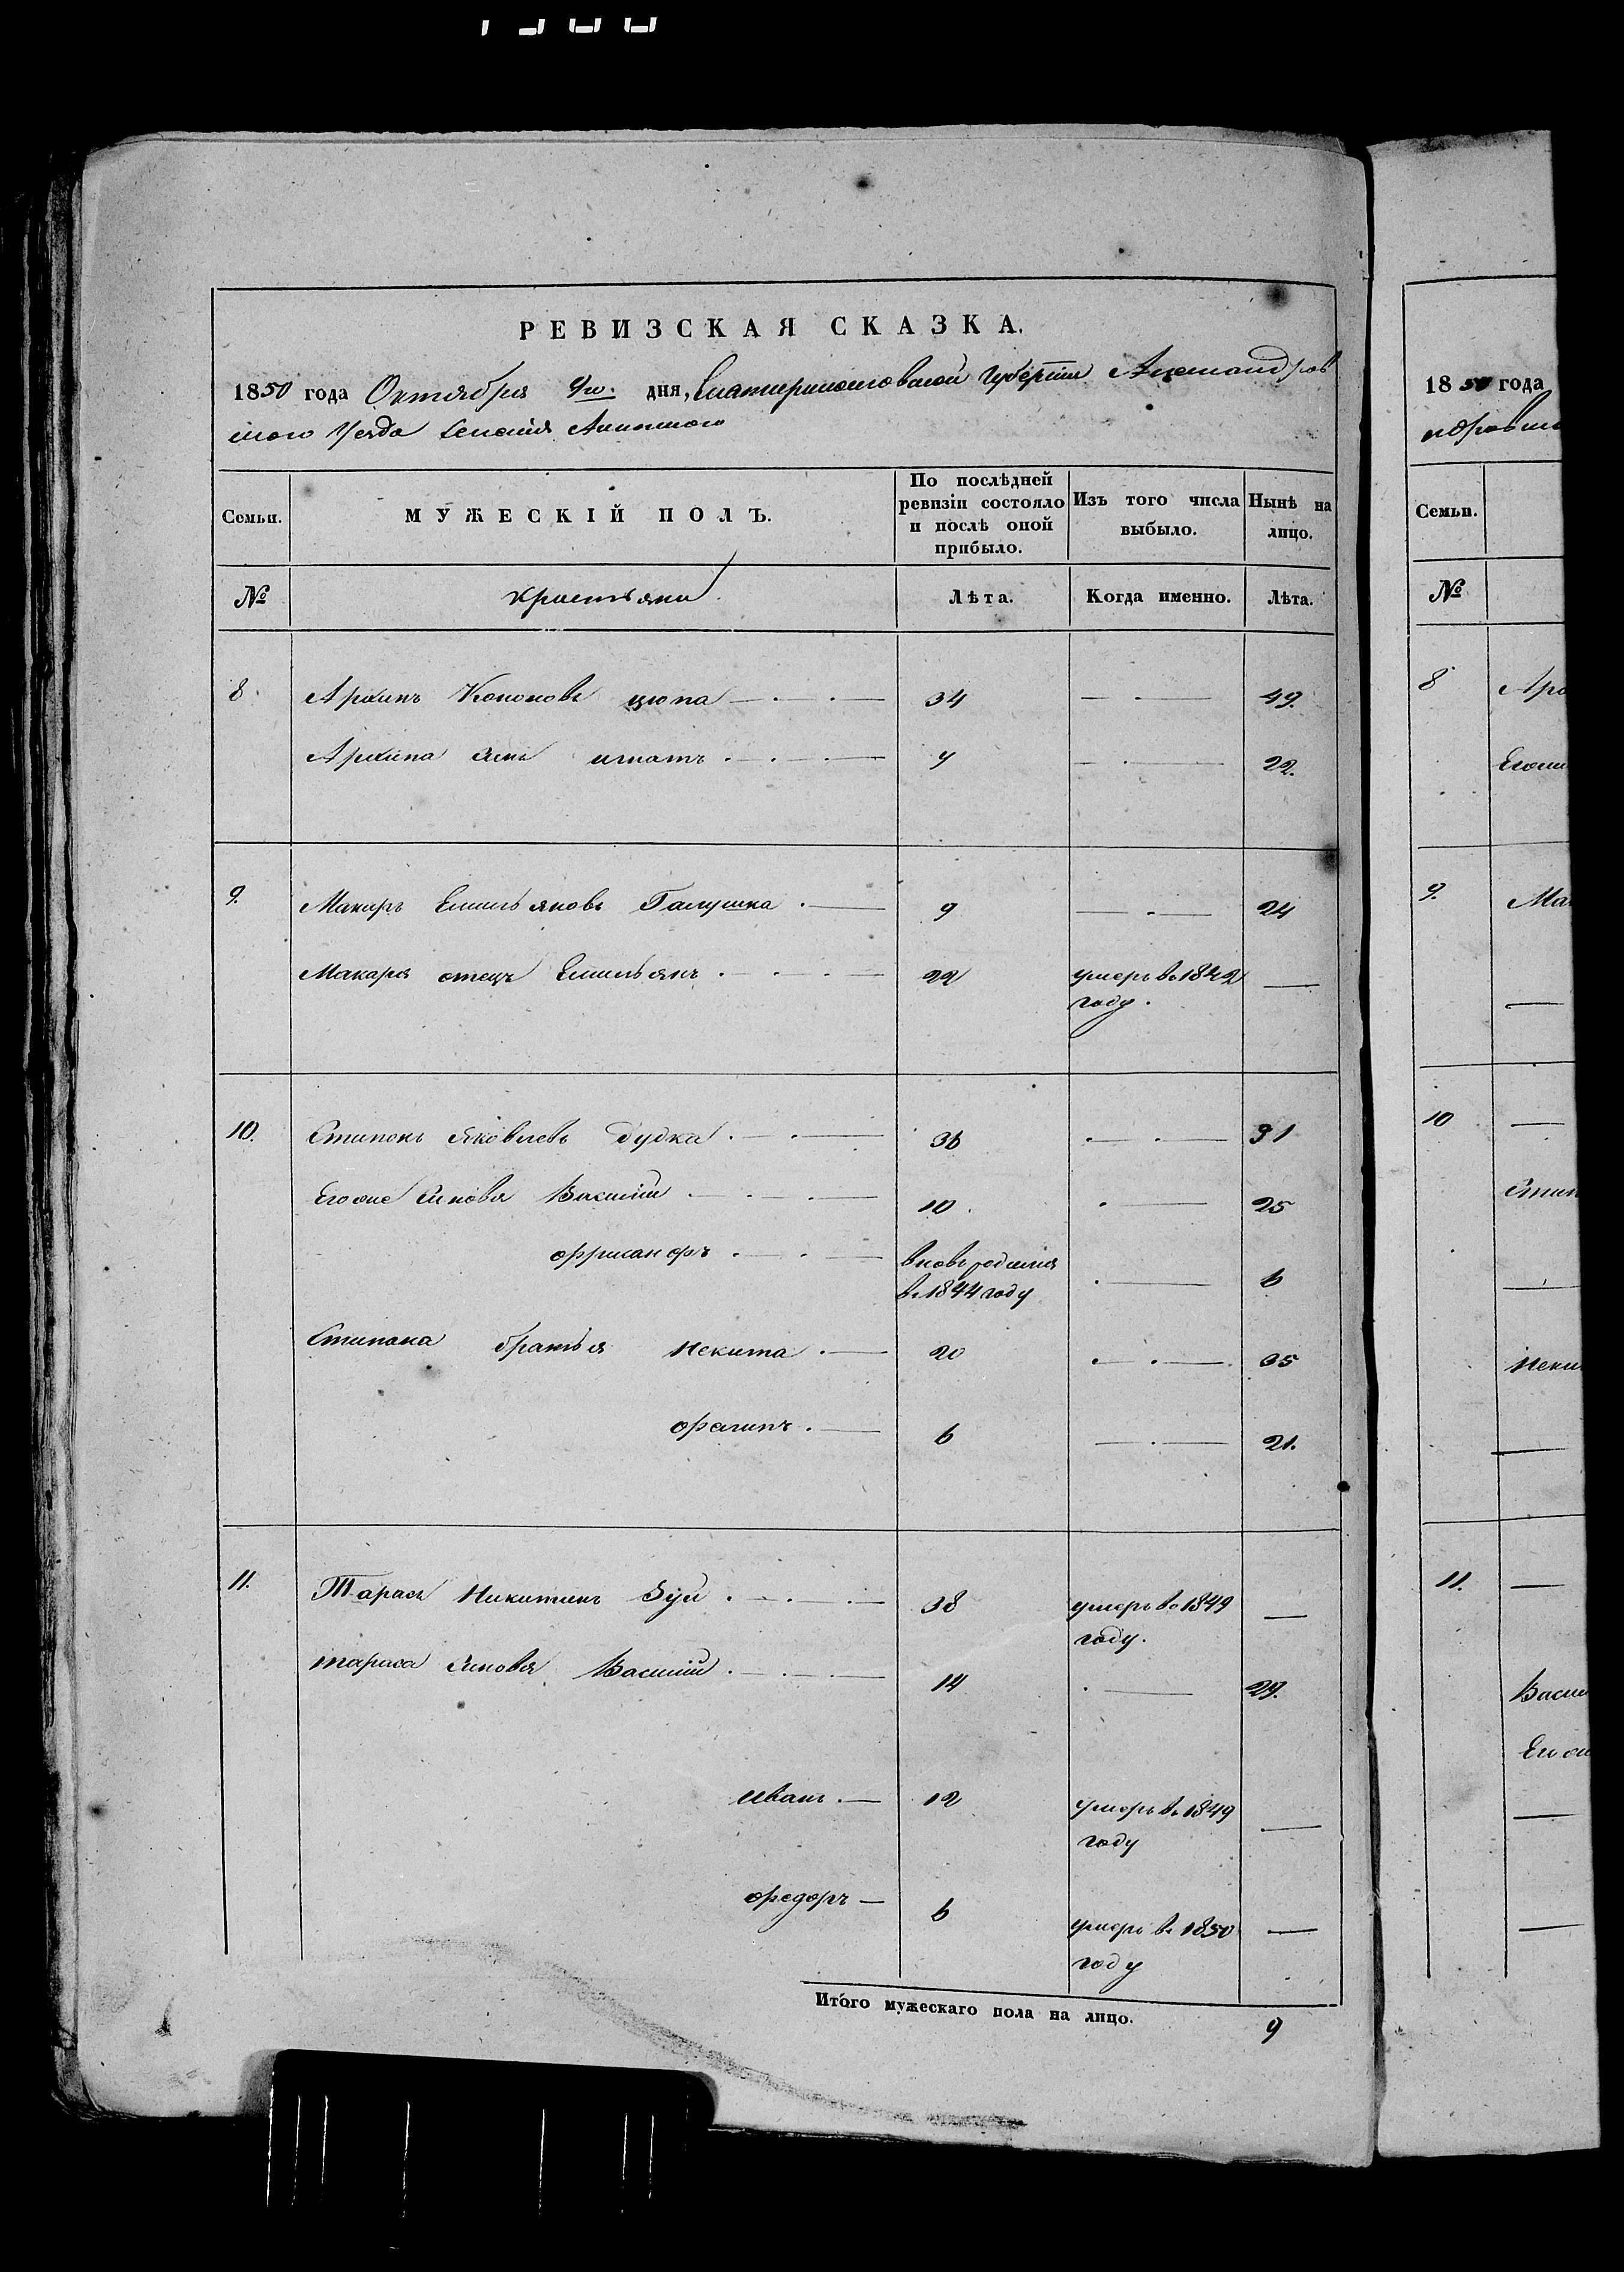 РЕВИЗСКАЯ СКАЗКА.
1850 года Октября дня, Екатеринославской Губерніи Александров
скаго Уезда Селенія
Семьи. МУЖЕСКІЙ ПОЛЪ. По послѣдней ревизіи состояло и послѣ оной прибыло. Изъ того числа выбыло. Нынѣ на лицо.
№ крестьяни Лѣта. Когда именно. Лѣта.
8 Архипъ Кононовъ цюпа 34 49.
Архипа сынъ игнатъ 7 22.
9. Макаръ Емельяновъ Галушка 9 24
Макара отецъ Емельянъ 22 умеръ в 1842
году.
10. Стипонъ Яковлевъ дудка 36 51
Егоже Синовя Василий 10. 25
вновь родился
в 1844 году 6
Стипана братья Некита 20 35
филипъ 6 21.
11. Тарасъ Никитинъ Зуй 38 умеръ во 1849
году.
тараса Синовя Василий 14 29.
иванъ 12 умеръ в 1849
году
федоръ 6 умеръ в 1850
году
Итого мужескаго пола на лицо. 9
1850 года
Семьи.
№
8
9.
10
11.